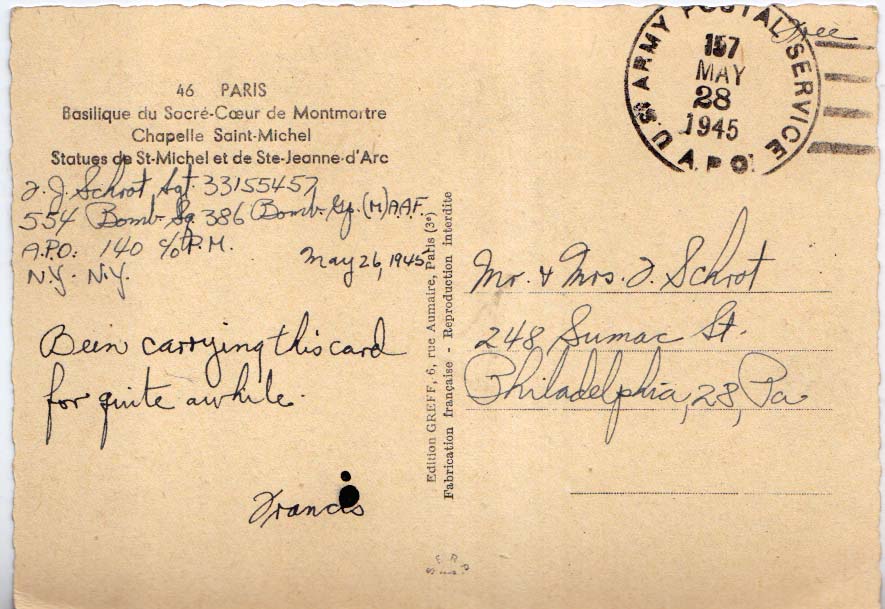 46 PARIS
Basilique du Sacré-Cœur de Montmartre
Chapelle Saint-Michel
Statues de St-Michel et de Ste-Jeanne-d'Arc
F. J. Schrot Sgt. 33155457
554 Bomb Sq 386 Bomb. Gp. (M) A.A.F.
A.P.O. 140 c/o P.M.
N.Y. N.Y.
May 26, 1945
Been carrying this card
for quite awhile.
Francis
Edition GREFF, 6, rue Aumaire, Paris (3e)
Fabrication française - Reproduction interdite
free
U.S. ARMY POSTAL SERVICE
A.P.O.
157
MAY
28
1945
Mr. & Mrs. F. Schrot
248 Sumac St.
Philadelphia, 28, Pa